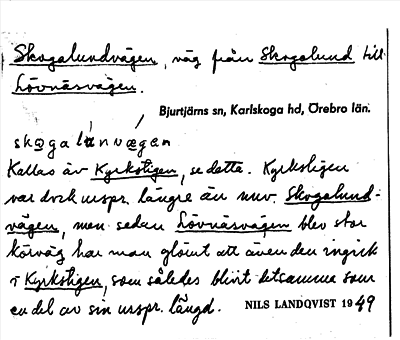 Skogalundvägen, väg från Skogalund till
Lövnäsvägen.
Bjurtjärns sn, Karlskoga hd, Örebro län.
skogalunvægen
Kallas äv Kyrkstigen, se detta. Kyrkstigen
var dock urspr. längre än nuv. Skogalund-
vägen, men sedan Lövnäsvägen blev stor
körväg har man glömt att även den ingick
i Kyrkstigen, som således blivit detsamma som
en del av sin urspr. längd.
NILS LANDQVIST 1949